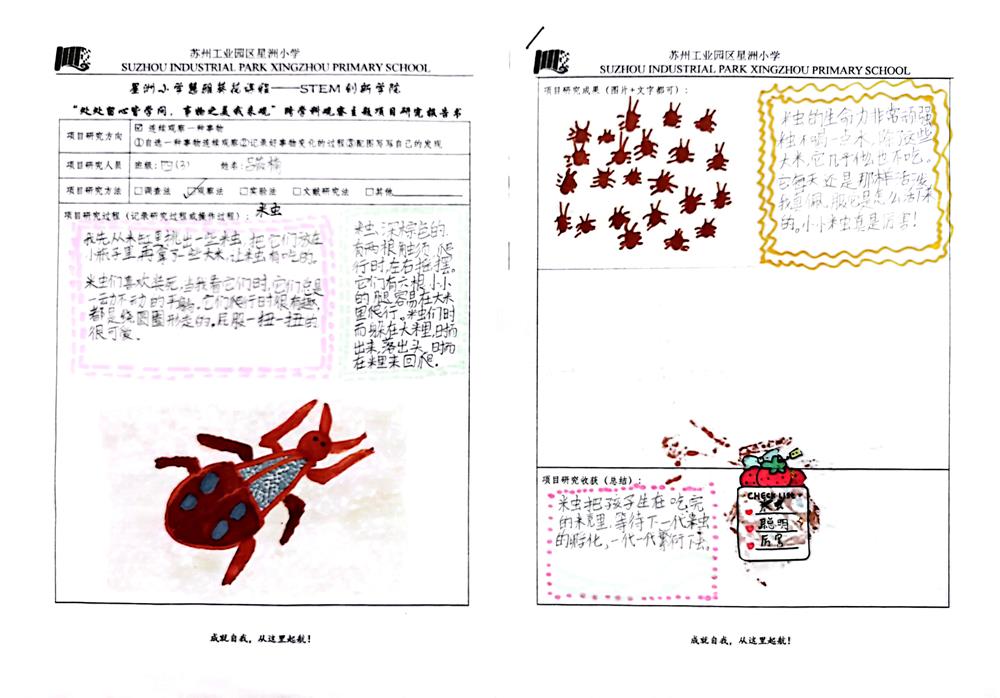 苏州工业园区星洲小学
SUZHOU INDUSTRIAL PARK XINGZHOU PRIMARY SCHOOL
星洲小学慧雅葵花课程——STEM创新学院
“处处留心皆学问，事物之美我来观”跨学科观察主题项目研究报告书
项目研究方向
☑ 连续观察一种事物
①自选一种事物连续观察②记录好事物变化的过程③配图写写自己的发现
项目研究人员 班级：四(3) 姓名：
项目研究方法 □调查法 ☑观察法 □实验法 □文献研究法 □其他
项目研究过程（记录研究过程或操作过程）：
米虫
我先从米缸里挑出一些米虫，把它们放在
小瓶子里，再拿了一些大米，让米虫有吃的。
米虫们喜欢装死，当我看它们时，它们总是
一动不动的平躺。它们爬行时很有趣，
都是绕圆圈形走的。屁股一扭一扭的
很可爱。
米虫，深棕色的。
有两根触须，爬
行时，左右摇摆。
它们有六根小小
的腿，容易在大米
里爬行。米虫们时
而躲在大米里，时而
出来，落出头，时而
在米里来回爬。
成就自我，从这里起航！
苏州工业园区星洲小学
SUZHOU INDUSTRIAL PARK XINGZHOU PRIMARY SCHOOL
项目研究成果（图片+文字都可）：
米虫的生命力非常顽强
虫不喝一点水，除了这些
大米，它几乎什么也不吃。
它每天还是那样活泼
我真佩服它是怎么活下来
的。小小米虫真是厉害！
项目研究收获（总结）：
米虫把孩子生在吃完
的米壳里，等待下一代米虫
的孵化，一代一代繁衍下去。
CHECK LIST
米虫
聪明
厉害
成就自我，从这里起航！